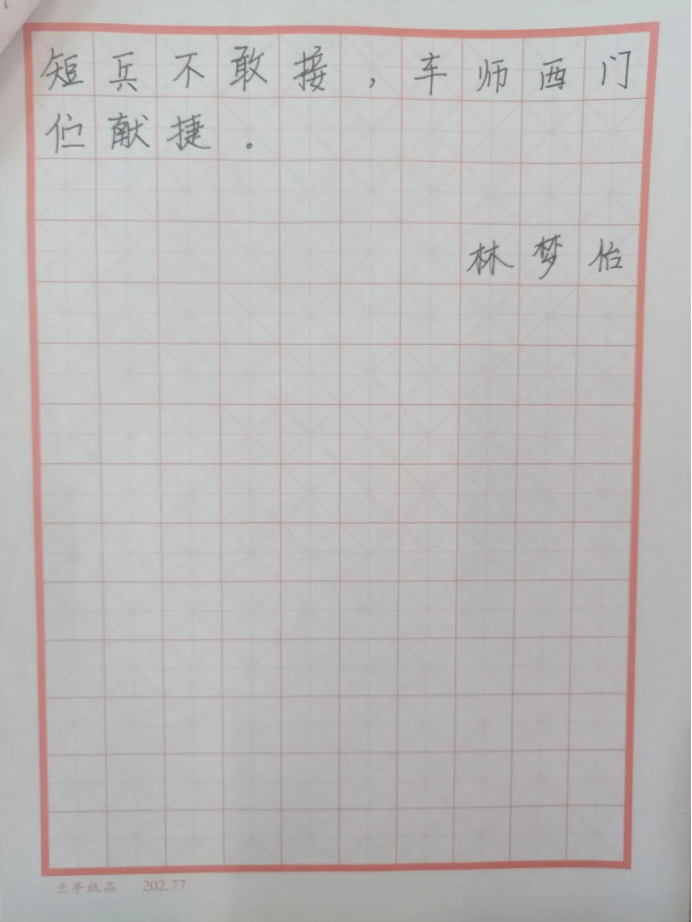 短兵不敢接，车师西门
伫献捷。
林梦怡
兰亭纸品 202.77